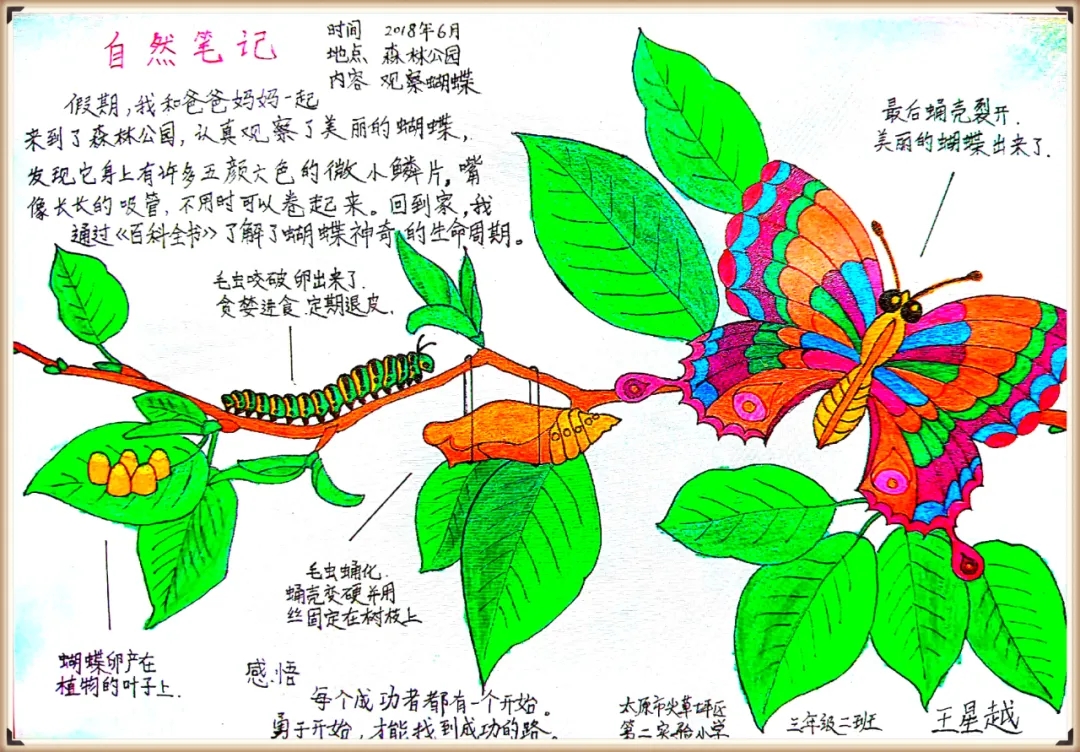 自然笔记
时间 2018年6月
地点 森林公园
内容 观察蝴蝶
假期，我和爸爸妈妈一起
来到了森林公园，认真观察了美丽的蝴蝶，
发现它身上有许多五颜六色的微小鳞片。嘴
像长长的吸管，不用时可以卷起来。回到家，我
通过《百科全书》了解了蝴蝶神奇的生命周期。
最后蛹壳裂开.
美丽的蝴蝶出来了.
毛虫咬破卵出来了.
贪婪进食.定期退皮.
毛虫蛹化.
蛹壳变硬并用
丝固定在树枝上
蝴蝶卵产在
植物的叶子上.
感悟
每个成功者都有一个开始。
勇于开始，才能找到成功的路。
太原市尖草坪区
第二实验小学
三年级二班
王星越